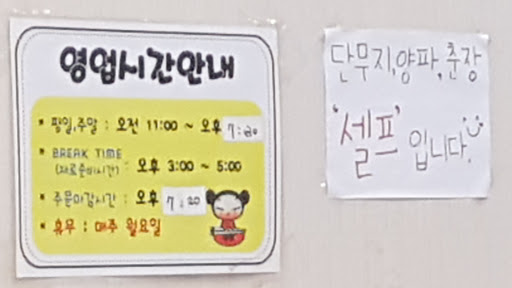 영업시간안내
• 평일,주말 : 오전 11:00 ~ 오후 7:20
• BREAK TIME
(재료준비시간) : 오후 3:00 ~ 5:00
• 주문마감시간 : 오후 7:20
• 휴무 : 매주 월요일
단무지,양파,춘장
'셀프'
입니다.